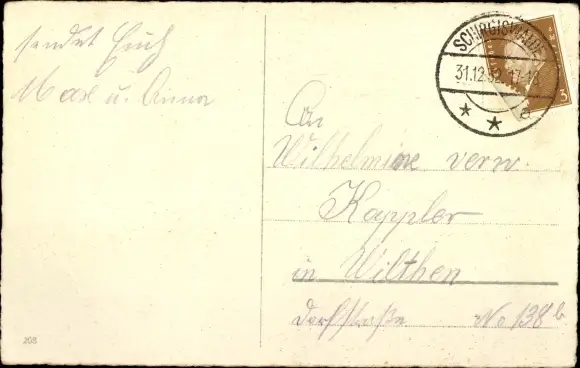 sendet Euch
Max u. Anna
SCHIRGISWALDE
31.12.32.17-18
a
3
An
Wilhelmine verw.
Kappler
in Wilthen
Dorfstraße No 138b
208